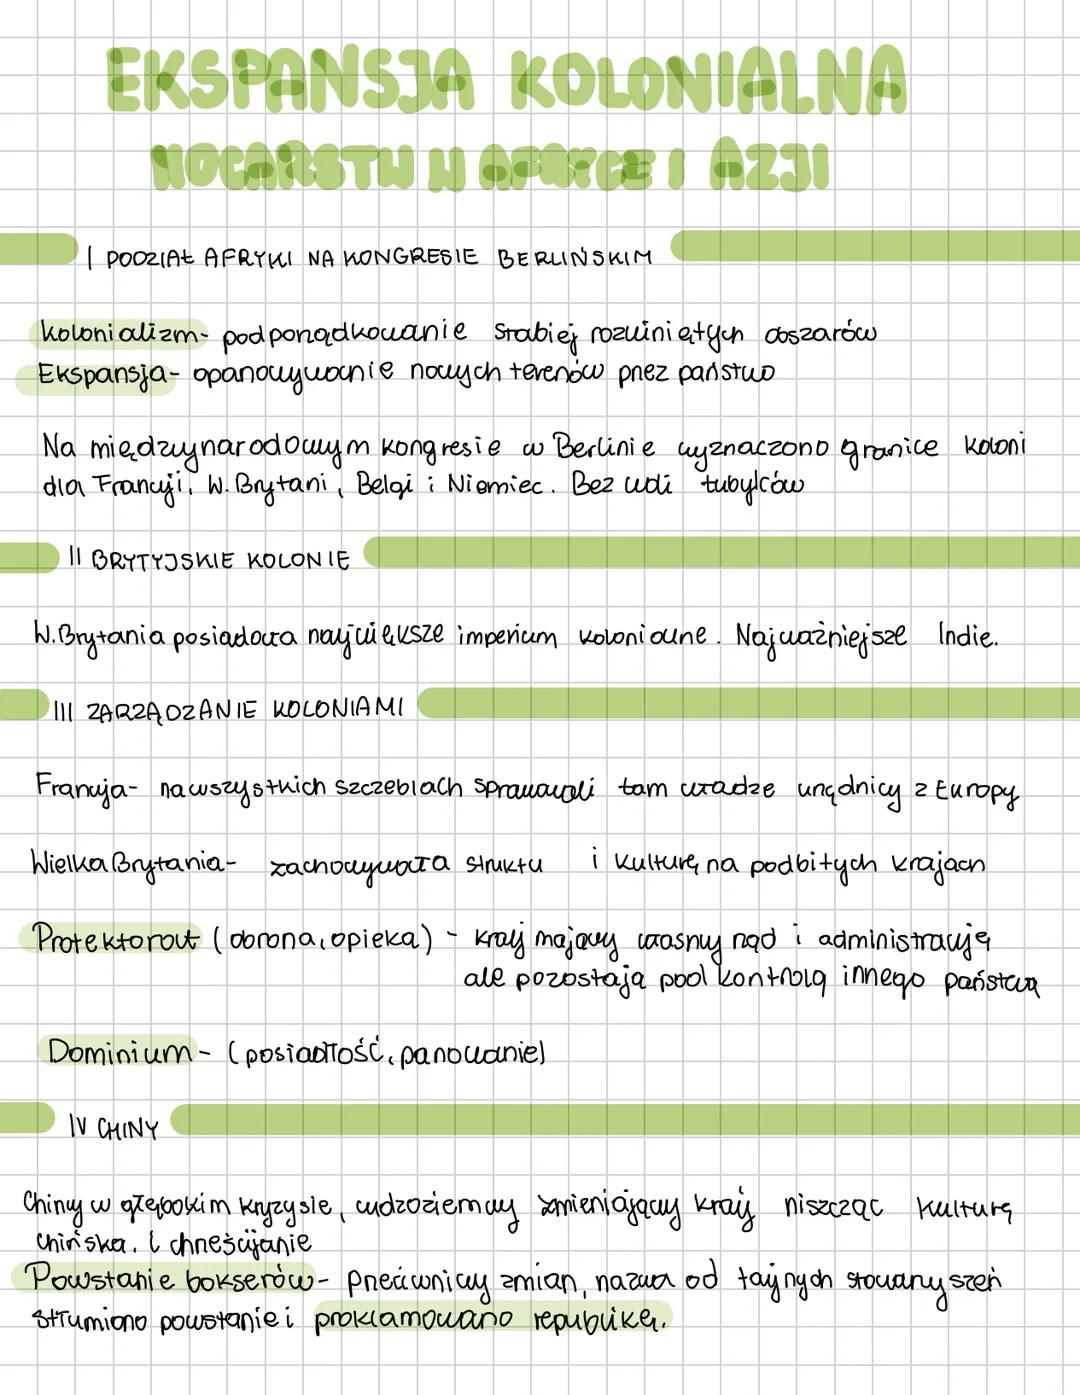 EKSPANSJA KOLONIALNA
MOCARSTW W AFRYCE I AZJI
I PODZIAŁ AFRYKI NA KONGRESIE BERLIŃSKIM
kolonializm- podporządkowanie słabiej rozwiniętych obszarów
Ekspansja- opanowywanie nowych terenów przez państwo
Na międzynarodowym kongresie w Berlinie wyznaczono granice koloni
dla Francji, W. Brytani, Belgi i Niemiec. Bez woli tubylców
II BRYTYJSKIE KOLONIE
W.Brytania posiadała największe imperium kolonialne. Najważniejsze Indie.
III ZARZĄDZANIE KOLONIAMI
Francja- na wszystkich szczeblach sprawowali tam władze urzędnicy z Europy
Wielka Brytania- zachowywała struktu i kulturę na podbitych krajach
Protektorat (obrona, opieka) - kraj mający własny rząd i administrację
ale pozostają pod kontrolą innego państwa
Dominium- (posiadłość, panowanie)
IV CHINY
Chiny w głębokim kryzysie, cudzoziemcy zmieniający kraj niszcząc kulturę
chińska. i chrześcijanie
Powstanie bokserów- przeciwnicy zmian, nazwa od tajnych stowarzyszeń
stłumiono powstanie i proklamowano republikę.